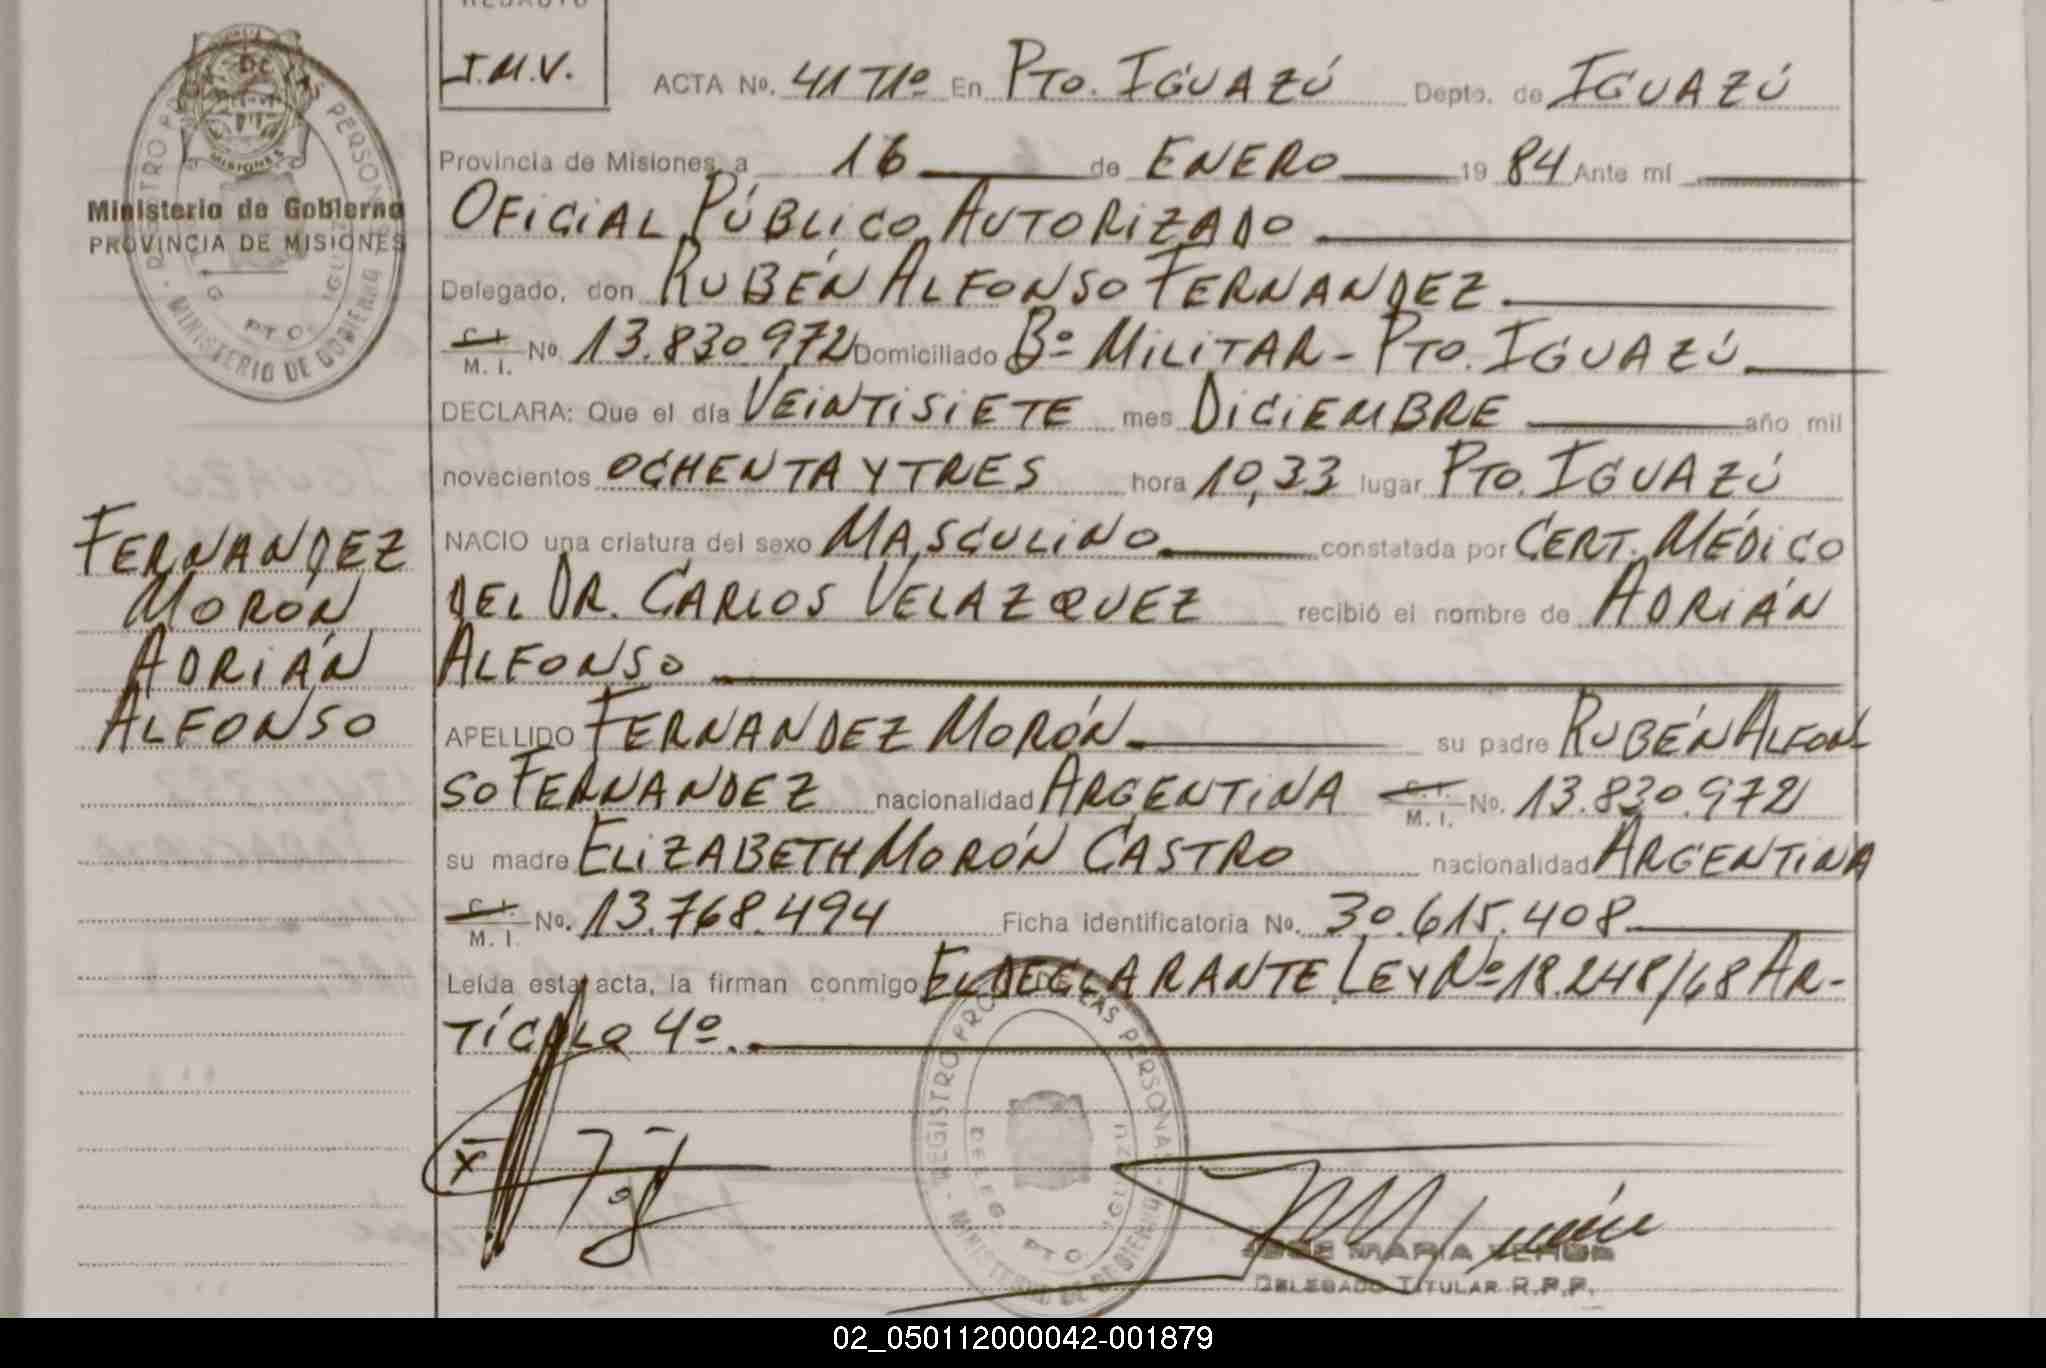 REDACTO
J.M.V.
ACTA No. 41 T1º En PTO. IGUAZÚ Depto. de IGUAZÚ
Provincia de Misiones, a 16 de ENERO 19 84 Ante mí
OFICIAL PÚBLICO AUTORIZADO
Delegado, don RUBÉN ALFONSO FERNANDEZ.
C. I. / M. I. No. 13.830.972 Domiciliado Bº MILITAR - PTO. IGUAZÚ
DECLARA: Que el día VEINTISIETE mes DICIEMBRE año mil
novecientos OCHENTA Y TRES hora 10,33 lugar PTO. IGUAZÚ
NACIO una criatura del sexo MASCULINO constatada por CERT. MÉDICO
DEL DR. CARLOS VELAZQUEZ recibió el nombre de ADRIÁN
ALFONSO
APELLIDO FERNANDEZ MORÓN su padre RUBÉN ALFON-
SO FERNANDEZ nacionalidad ARGENTINA C. I. / M. I. No. 13.830.972
su madre ELIZABETH MORÓN CASTRO nacionalidad ARGENTINA
C. I. / M. I. No. 13.768.494 Ficha identificatoria No. 30.615.408
Leída esta acta, la firman conmigo EL DECLARANTE LEY Nº 18.248/68 AR-
TÍCULO 4º.
Ministerio de Gobierno
PROVINCIA DE MISIONES
FERNANDEZ
MORÓN
ADRIÁN
ALFONSO
MISIONES
REGISTRO PROV. DE LAS PERSONAS
MINISTERIO DE GOBIERNO
DELEG. PTO. IGUAZU
JOSE MARIA
DELEGADO TITULAR R.P.P.
02_050112000042-001879